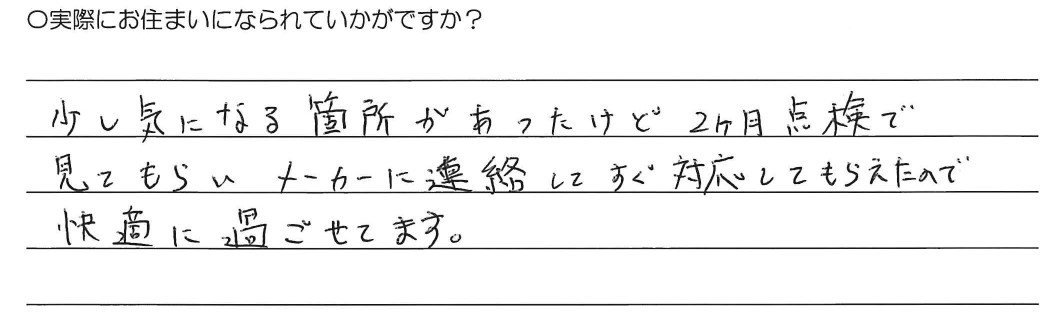 〇実際にお住まいになられていかがですか？
少し気になる箇所があったけど 2ヶ月点検で
見てもらい メーカーに連絡してすぐ対応してもらえたので
快適に過ごせてます。